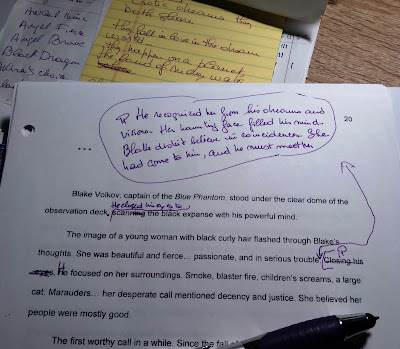 dreams they
Angel Fire
Angel Brown
They fall in love in the dream
Black Dragon
on a planet
20
¶ He recognized her from his dreams and
visions. Her haunting face filled his mind.
Blake didn't believe in coincidences. She
had come to him, and he must meet her
...
Blake Volkov, captain of the Blue Phantom, stood under the clear dome of the
He closed his eyes to
observation deck, scanning the black expanse with his powerful mind.
The image of a young woman with black curly hair flashed through Blake's
thoughts. She was beautiful and fierce... passionate, and in serious trouble. ¶ Closing his
eyes, He focused on her surroundings. Smoke, blaster fire, children's screams, a large
cat. Marauders... her desperate call mentioned decency and justice. She believed her
people were mostly good.
The first worthy call in a while. Since the fall of